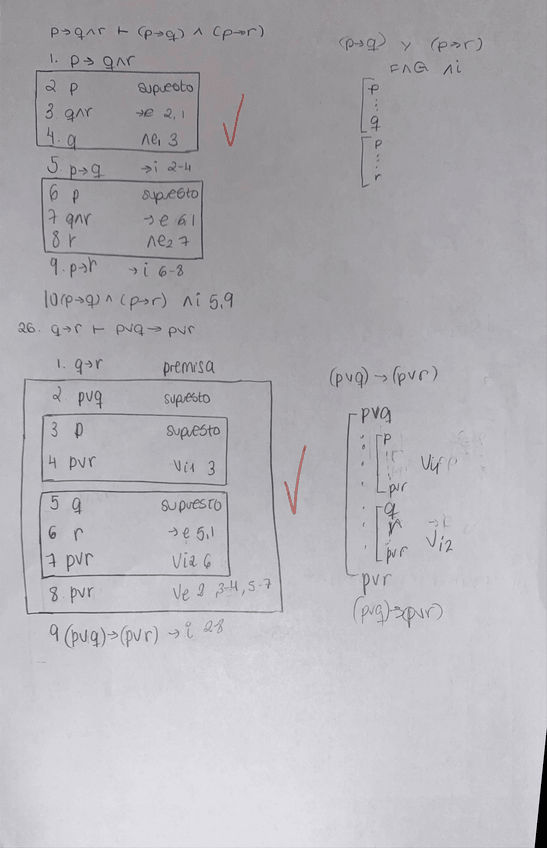 p→q∧r ⊢ (p→q) ∧ (p→r)
1. p→ q∧r
2 p supuesto
3. q∧r →e 2,1
4. q ∧e₁ 3
5. p→q →i 2-4
6 p supuesto
7 q∧r →e 6,1
8 r ∧e₂ 7
9. p→r →i 6-8
10 (p→q) ∧ (p→r) ∧i 5,9
(p→q) y (p→r)
∧i
p
⋮
q
p
⋮
r
26. q→r ⊢ p∨q → p∨r
1. q→r premisa
2 p∨q supuesto
3 p supuesto
4 p∨r ∨i1 3
5 q supuesto
6 r →e 5,1
7 p∨r ∨i2 6
8. p∨r ∨e 2, 3-4, 5-7
9 (p∨q)→(p∨r) →i 2-8
(p∨q) → (p∨r)
p∨q
p
p∨r
q
r
p∨r ∨i2
p∨r
(p∨q)→(p∨r)